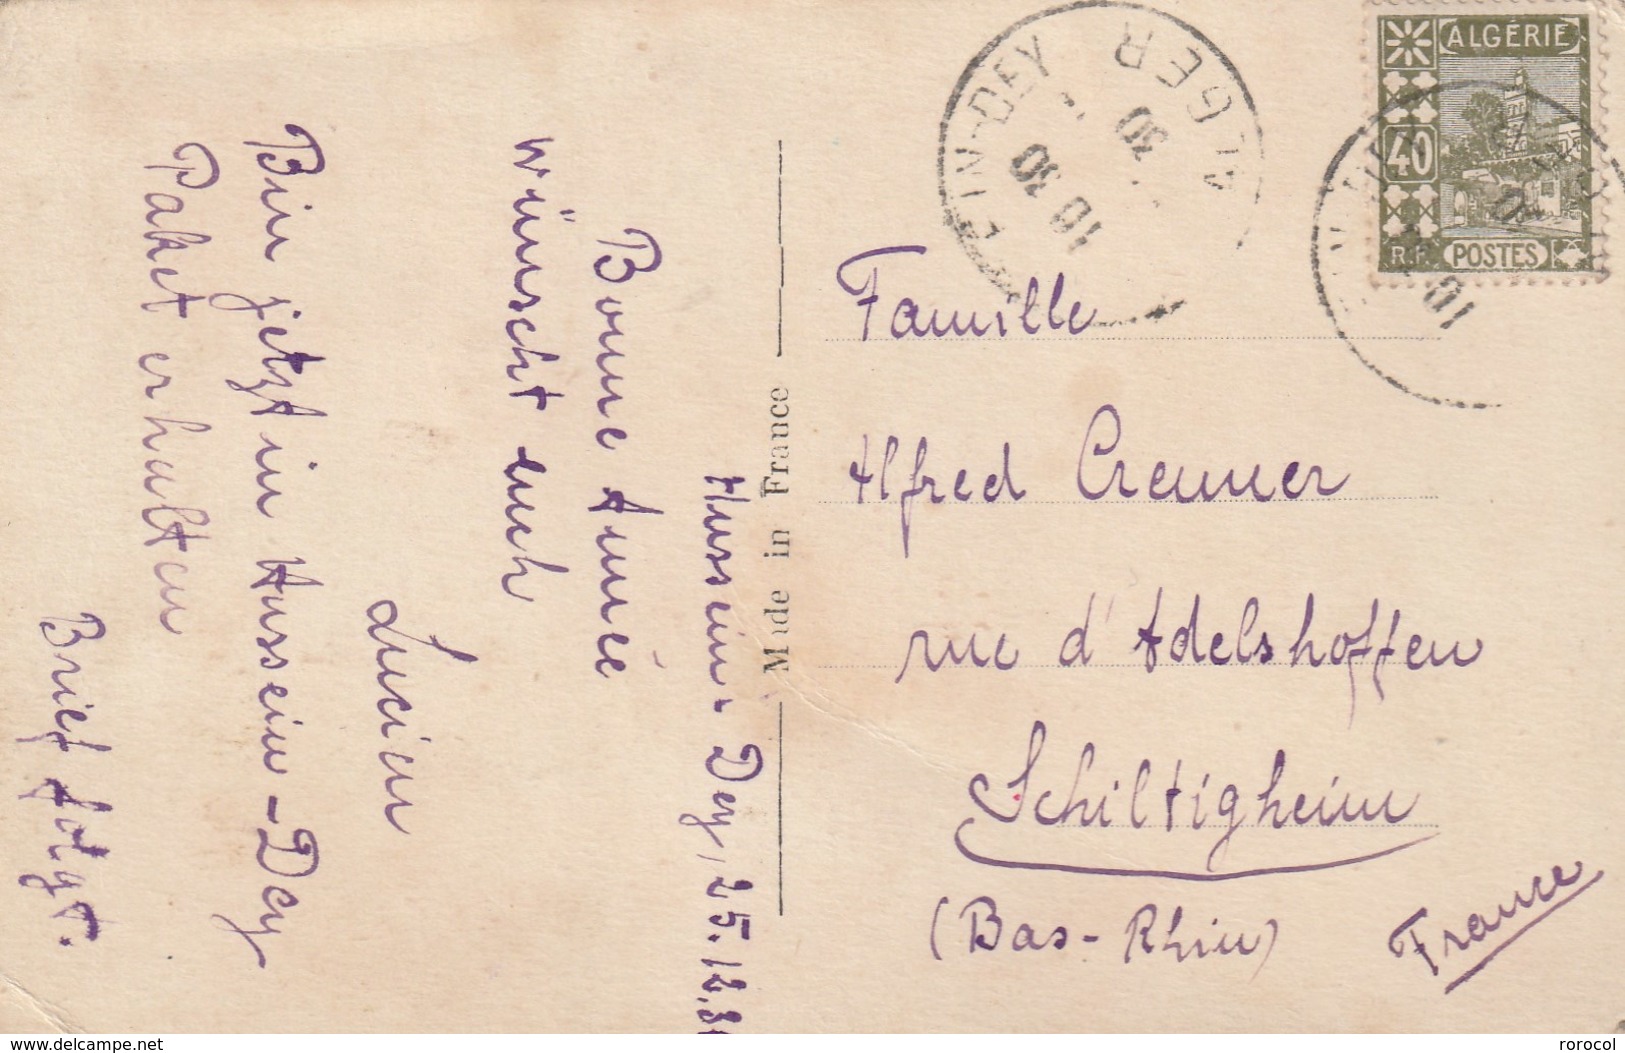 Hussein-Dey, 25.12.30
Bonne Année
wünscht euch
Lucien
Bin jetzt in Hussein-Dey
Paket erhalten
Brief folgt.
Made in France
Famille
Alfred Cremer
rue d'Adelshoffen
Schiltigheim
(Bas-Rhin)
France
EIN-DEY ALGER
30
10 30
ALGÉRIE
40
R.F. POSTES
10
www.delcampe.net
rorocol